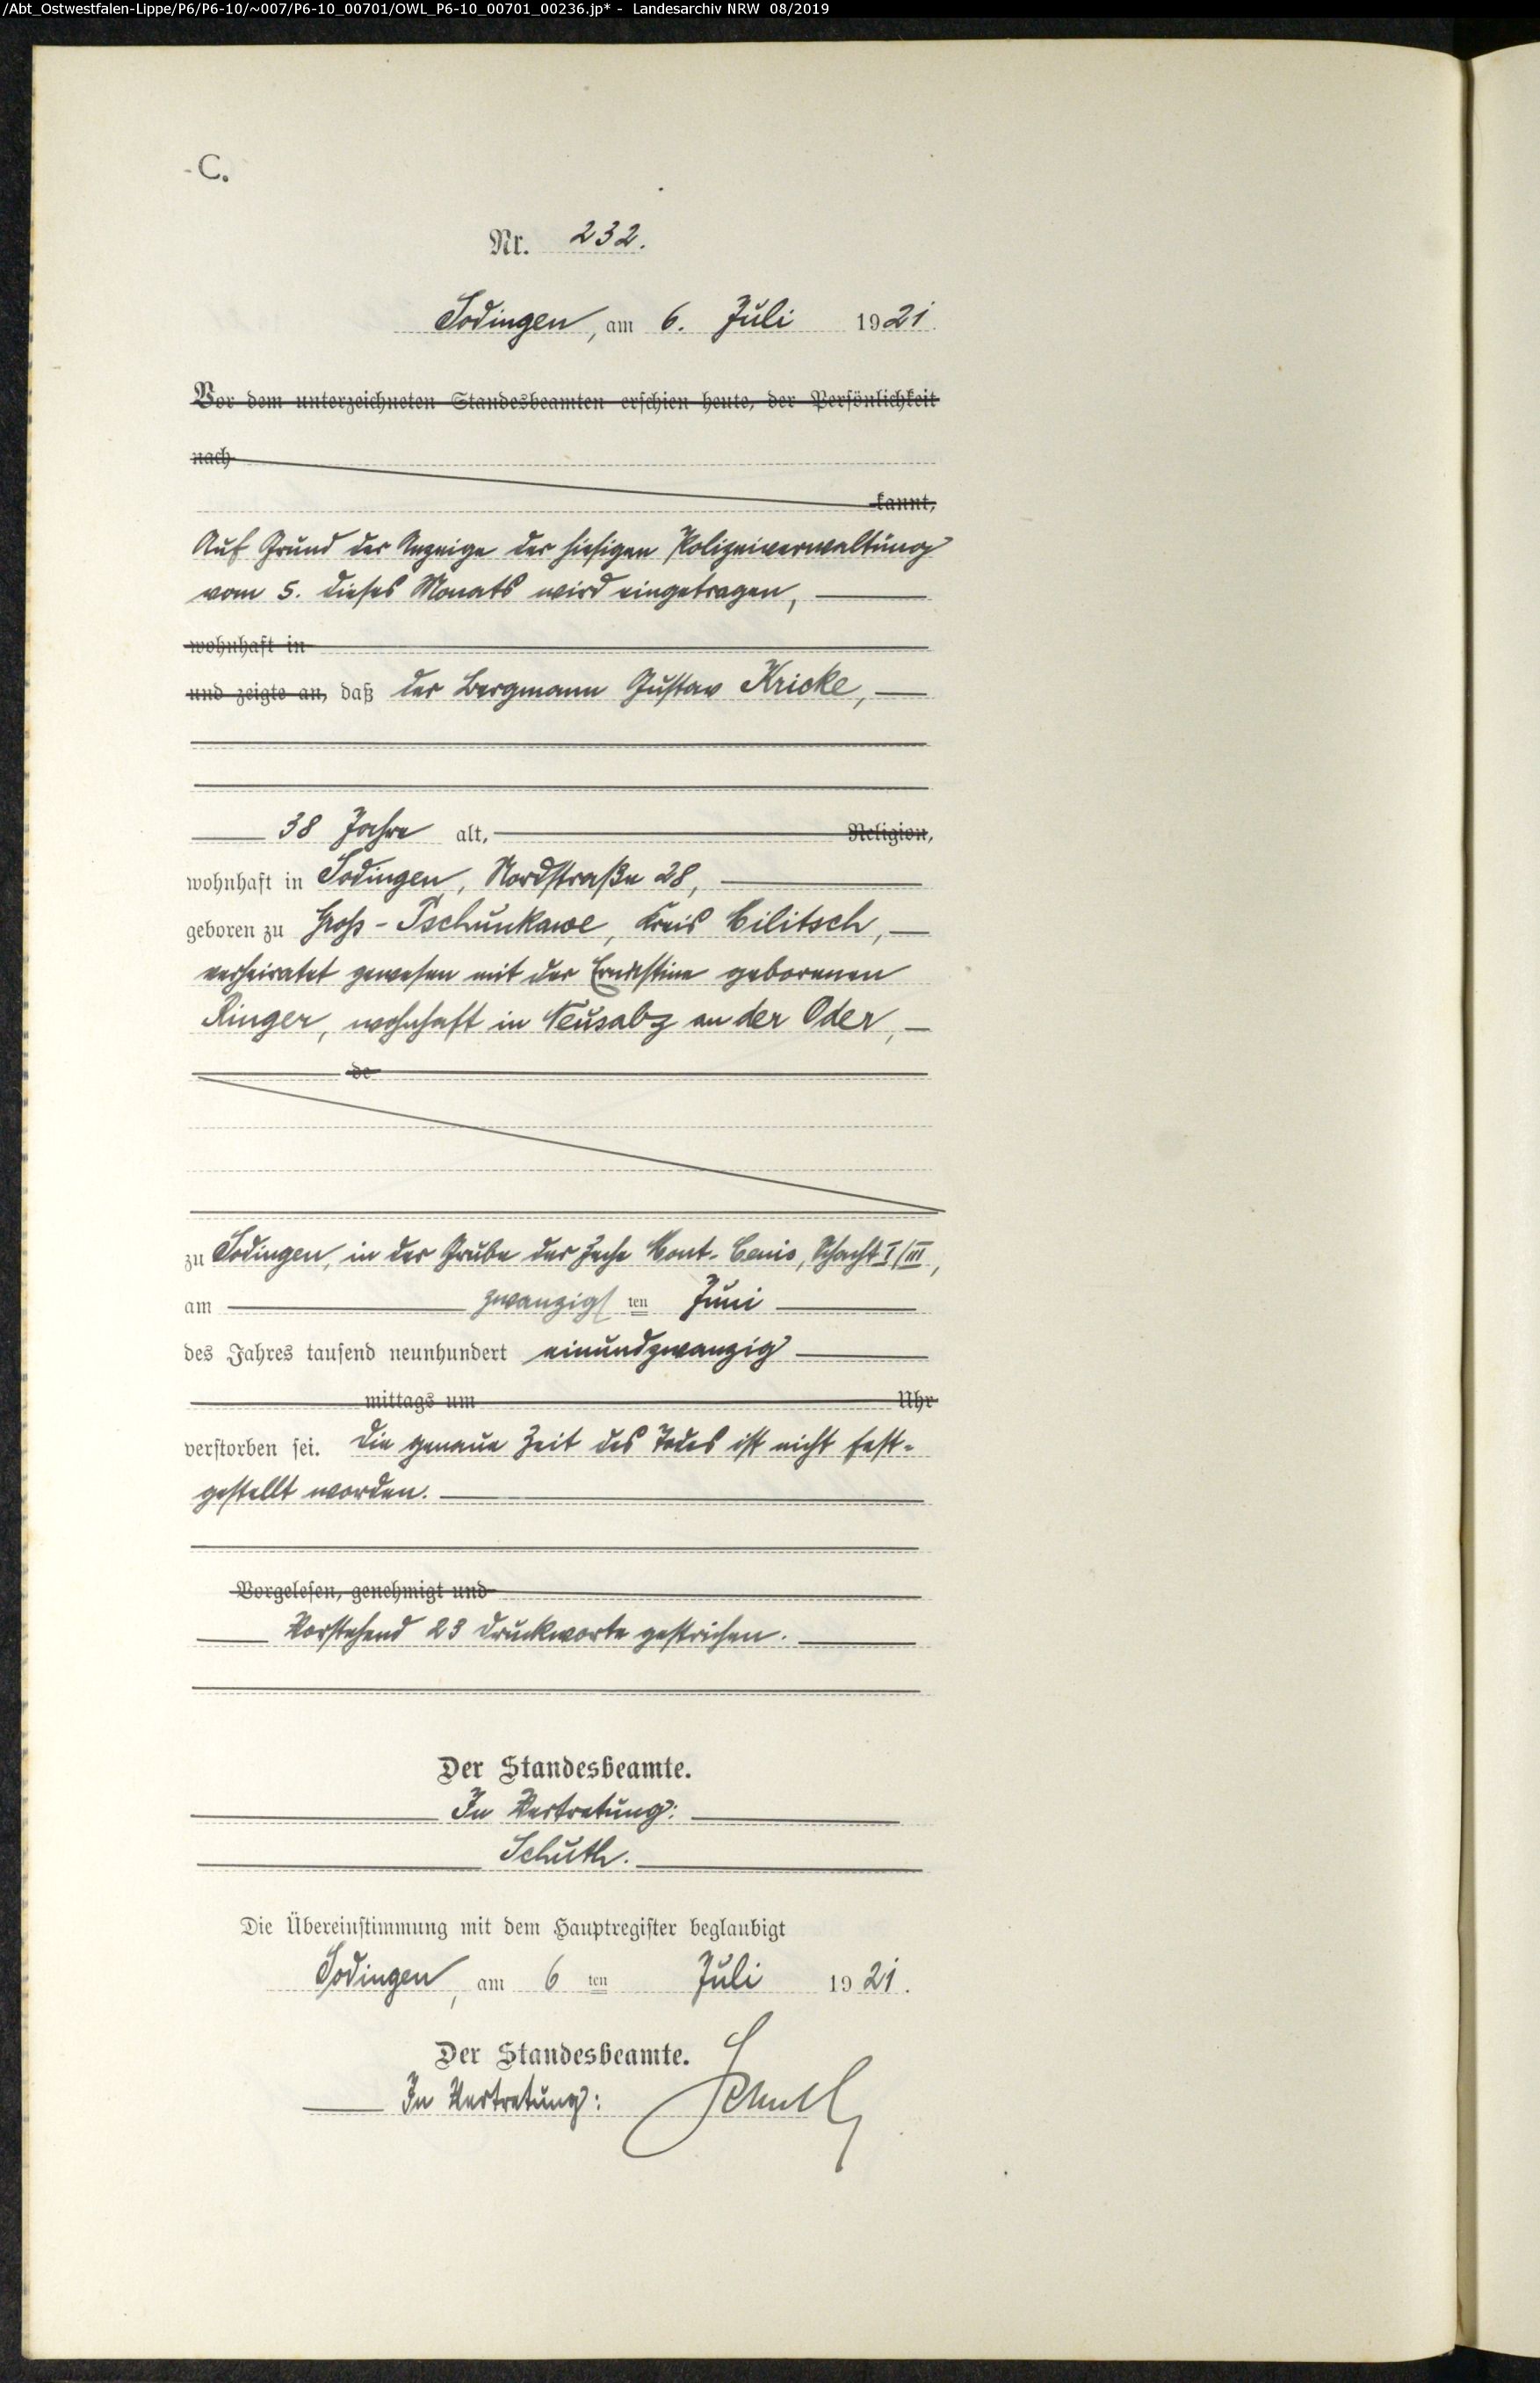 /Abt_Ostwestfalen-Lippe/P6/P6-10/~007/P6-10_00701/OWL_P6-10_00701_00236.jp* - Landesarchiv NRW 08/2019
C.
Nr. 232.
Sodingen, am 6. Juli 1921.
Vor dem unterzeichneten Standesbeamten erschien heute, der Persönlichkeit
nach
kannt,
Auf Grund der Anzeige der hiesigen Polizeiverwaltung
vom 5. dieses Monats wird eingetragen,
wohnhaft in
und zeigte an, daß der Bergmann Gustav Kricke,
38 Jahre alt, Religion,
wohnhaft in Sodingen, Nordstraße 28,
geboren zu Groß-Tschunkawe, Kreis Militsch,
verheiratet gewesen mit der Ernestine geborenen
Ringer, wohnhaft in Neusalz an der Oder,
de
zu Sodingen, in der Grube der Zeche Mont-Cenis, Schacht I/III,
am zwanzigsten Juni
des Jahres tausend neunhundert einundzwanzig
mittags um Uhr
verstorben sei. Die genaue Zeit des Todes ist nicht fest-
gestellt worden.
Vorgelesen, genehmigt und
Vorstehend 23 Druckworte gestrichen.
Der Standesbeamte.
In Vertretung:
Schuth.
Die Übereinstimmung mit dem Hauptregister beglaubigt
Sodingen, am 6 ten Juli 1921.
Der Standesbeamte.
In Vertretung: Schuth